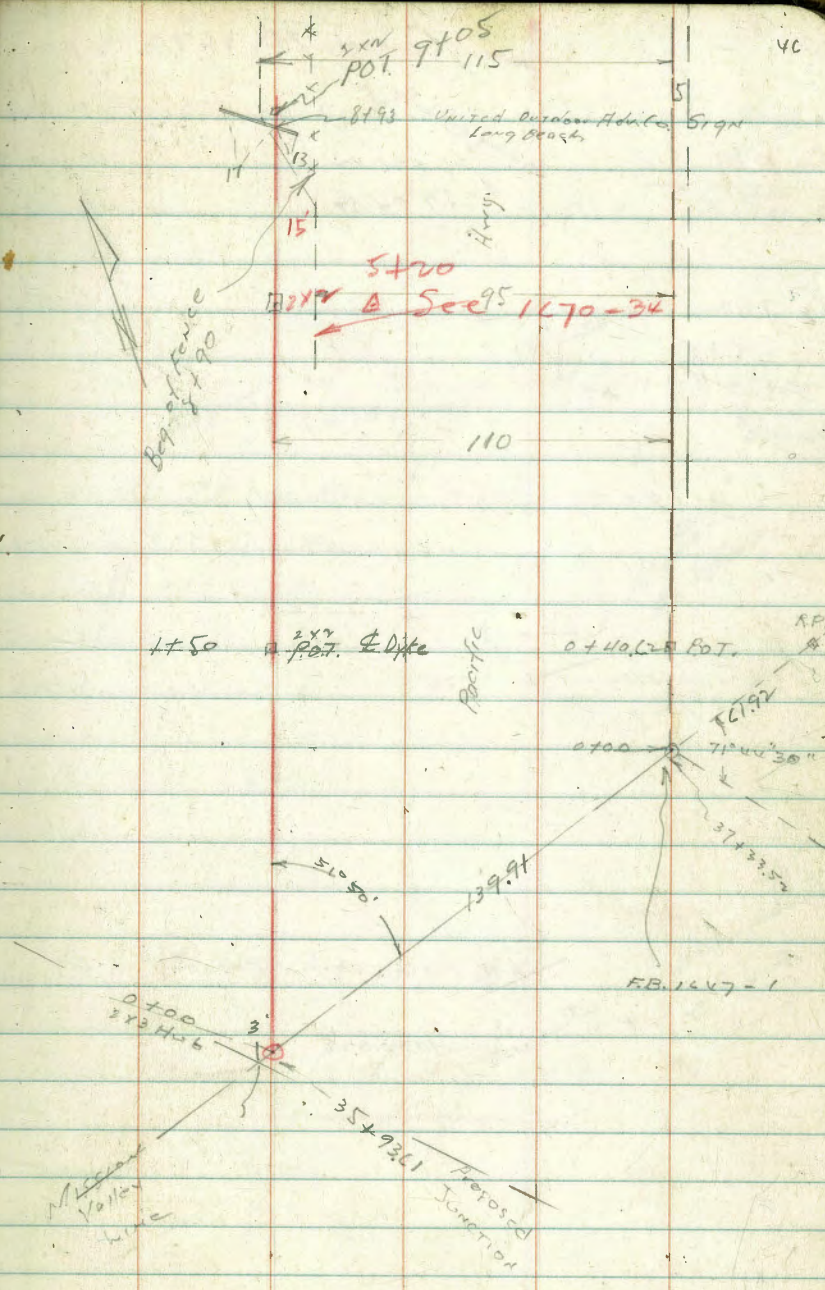 46
2x2
POT. 9+05
115
5
8+93 United Outdoor Sign
Long Beach
17
13
15'
Hwy.
5+20
2x2 See 95 1670-34
Beg. of Fence
8+90
110
1+50 2x2 P.O.T. ℄ Dyke
Pacific
0+40.62 P.O.T.
R.P.
0+00
71°44'30"
37+33.52
139.91
F.B. 1647-1
0+00
2x3 Hub
3'
35+93.61
Proposed
Junction
Mission
Valley
Line